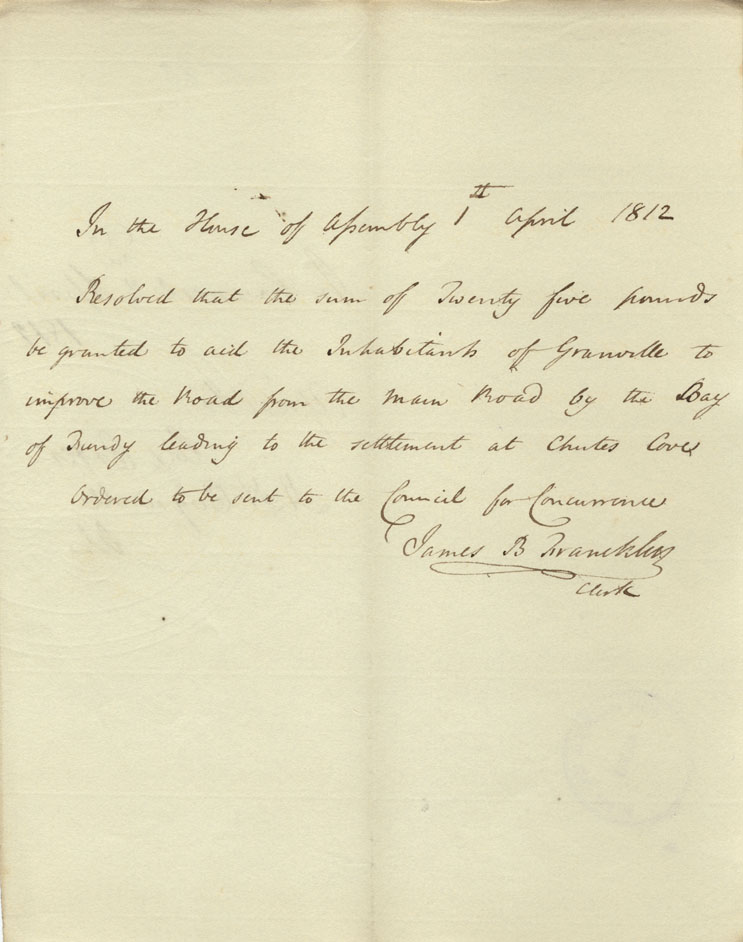 In the House of Assembly 1th April 1812
Resolved that the sum of Twenty five pounds
be granted to aid the Inhabitants of Granville to
improve the Road from the Main Road by the Bay
of Fundy leading to the settlement at Chutes Cove
Ordered to be sent to the Council for Concurrence
James B Francklin
Clerk